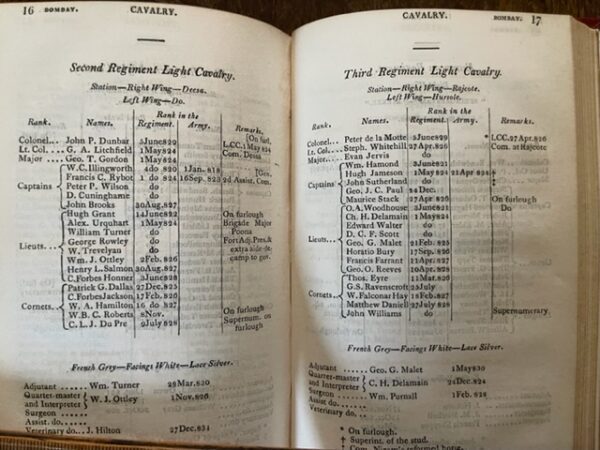 16 BOMBAY. CAVALRY.
Second Regiment Light Cavalry.
Station—Right Wing—Deesa.
Left Wing—Do.
Rank in the
Rank. Names. Regiment. Army. Remarks.
Colonel... John P. Dunbar 3June829 [On furl.
Lt. Col.... G. A. Litchfield 1May824 L.CC.1 May 824
Major .... Geo. T. Gordon 1May824 Com. Deesa
Captains W.C. Illingworth 4do 820 1Jan.818
Francis C. Rybot 1 do 824 16Sep.823 2d Assist. Com.
Peter P. Wilson do
D. Cuninghame do
John Brooks 30Aug.827
Lieuts... Hugh Grant 14June822 On furlough
Alex. Urquhart 1May824 Brigade Major
William Turner do Poona
George Rowley do Fort Adj. Pres. &
W. Trevelyan do extra aide-de-
Wm. J. Ottley 2Feb.826 camp to gov.
Henry L. Salmon 30Aug.827
C. Forbes Honner 3June828
Cornets... Patrick G. Dallas 27Dec.825
C.ForbesJackson 17Feb.826
W. A. Hamilton 16 do 827
W. B. C. Roberts 8Nov. On furlough
C. L. J. Du Pre 9July828 Supernum. on
furlough
French Grey—Facings White—Lace Silver.
Adjutant ...... Wm. Turner 28Mar.830
Quarter-master
and Interpreter W. J. Ottley 1Nov.826
Surgeon ......
Assist. do......
Veterinary do... J. Hilton 27Dec.824
CAVALRY. BOMBAY. 17
Third Regiment Light Cavalry.
Station—Right Wing—Rajcote.
Left Wing—Hursole.
Rank in the
Rank. Names. Regiment. Army. Remarks.
Colonel... Peter de la Motte 3June829 * LCC.27Apr.826
Lt. Col.... Steph. Whitehill 27Apr.826 Com. at Rajcote
Major.... Evan Jervis do
Captains Wm. Hamond 3June821
Hugh Jameson 1May824 21Apr 824 †
John Sutherland do ‡
Geo. J. C. Paul 24Dec.
Maurice Stack 27Apr 826 On furlough
Lieuts... O. A. Woodhouse 1June821 Do
Ch. H. Delamain 1May824
Edward Walter do
D. C. F. Scott do
Geo. G. Malet 21Feb.825
Horatio Bury 17Sep.826
Francis Farrant 21Apr.827
Geo. O. Reeves 10Apr.828
Cornets... Thos. Eyre 11Mar.826
G.S. Ravenscroft 25July
W. Falconar Hay 18Feb.827
Matthew Daniell 27July828
John Williams do Supernumerary.
French Grey—Facings White—Lace Silver.
Adjutant ...... Geo. G. Malet 1May830
Quarter-master
and Interpreter C. H. Delamain 24Dec.824
Surgeon ...... Wm. Purnall 1Feb.828
Assist do ......
Veterinary do..
* On furlough.
† Superint. of the stud.